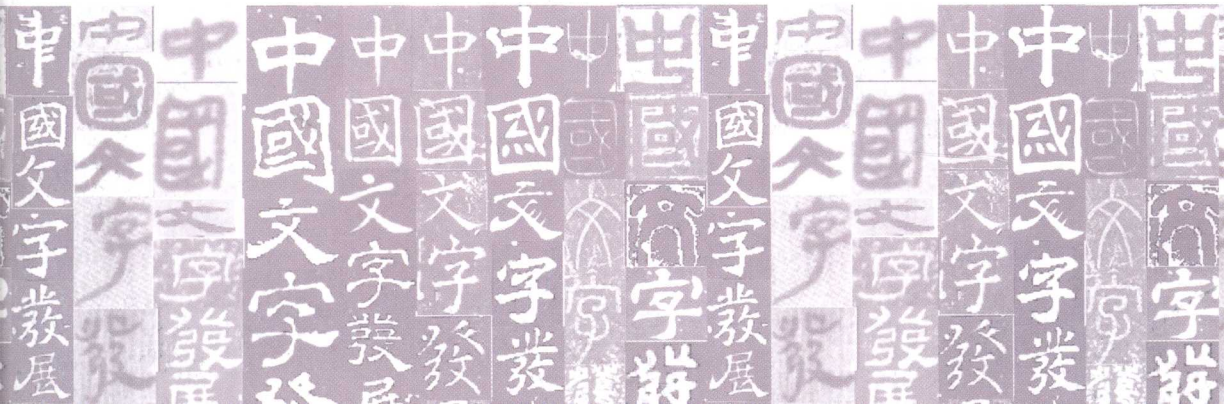 中國文字
中國文字
中國文字發
中國文字發
中國文字發展
中國文字發
中國文字發展
中國文字
中國文字
中國文字發
中國文字發
中國文字發展
中國文字發
中國文字發展
中國文字發
中國文字發展